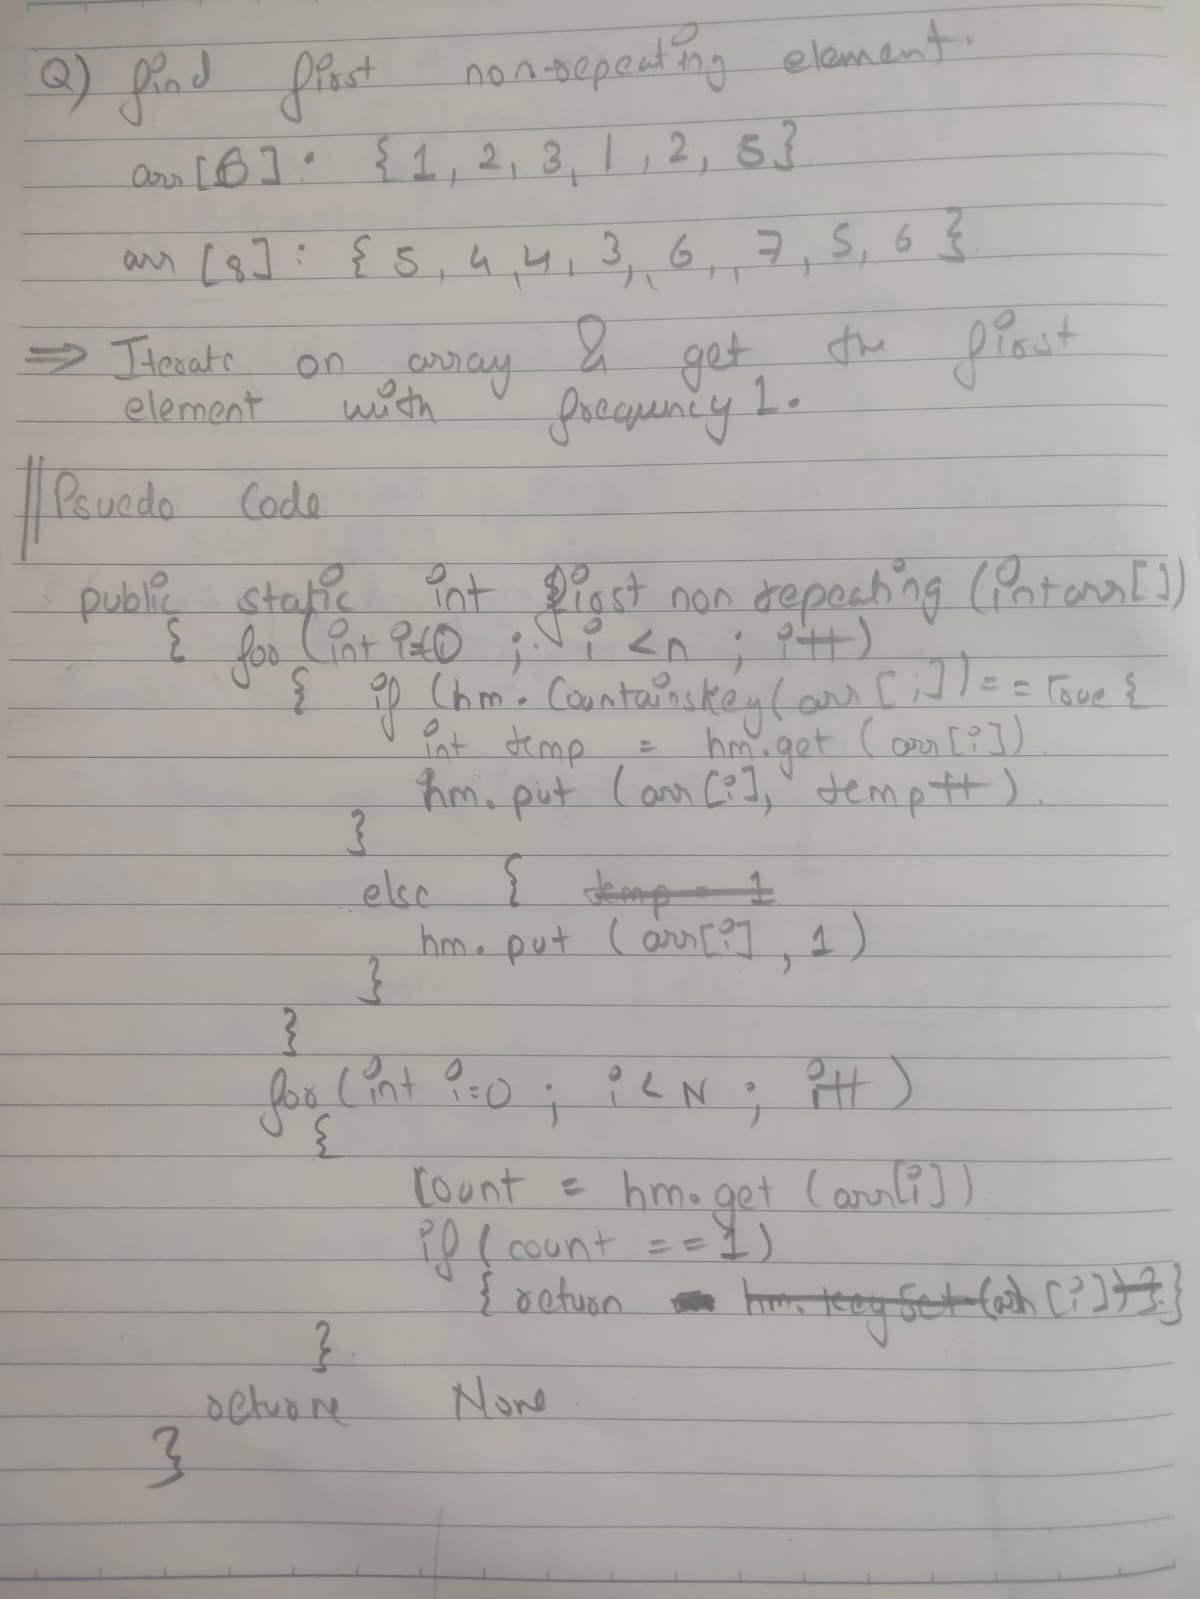 Q) find first non-repeating element.
arr[6] : {1, 2, 3, 1, 2, 5}
arr [8] : { 5, 4, 4, 3, 6, 7, 5, 6 }
⇒ Iterate on array & get the first
element with frequency 1.
|| Psuedo Code
public static int first non repeating (int arr[])
{ for (int i=0 ; i < n ; i++)
{ if (hm. Countainskey( arr [i]) == True {
int temp = hm.get (arr[i])
hm. put (arr[i], temp++).
}
else { temp = 1
hm. put (arr[i] , 1)
}
}
for (int i=0 ; i < N ; i++)
{
count = hm.get (arr[i])
if (count == 1)
{ return hm. keySet (arr [i]) }.}
}
return None
}